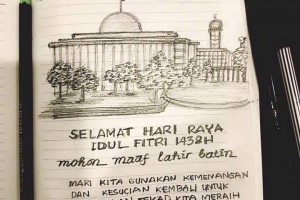 SELAMAT HARI RAYA
IDUL FITRI 1438H
mohon maaf lahir batin
MARI KITA GUNAKAN KEMENANGAN
DAN KESUCIAN KEMBALI UNTUK
TEKAD KITA MERAIH